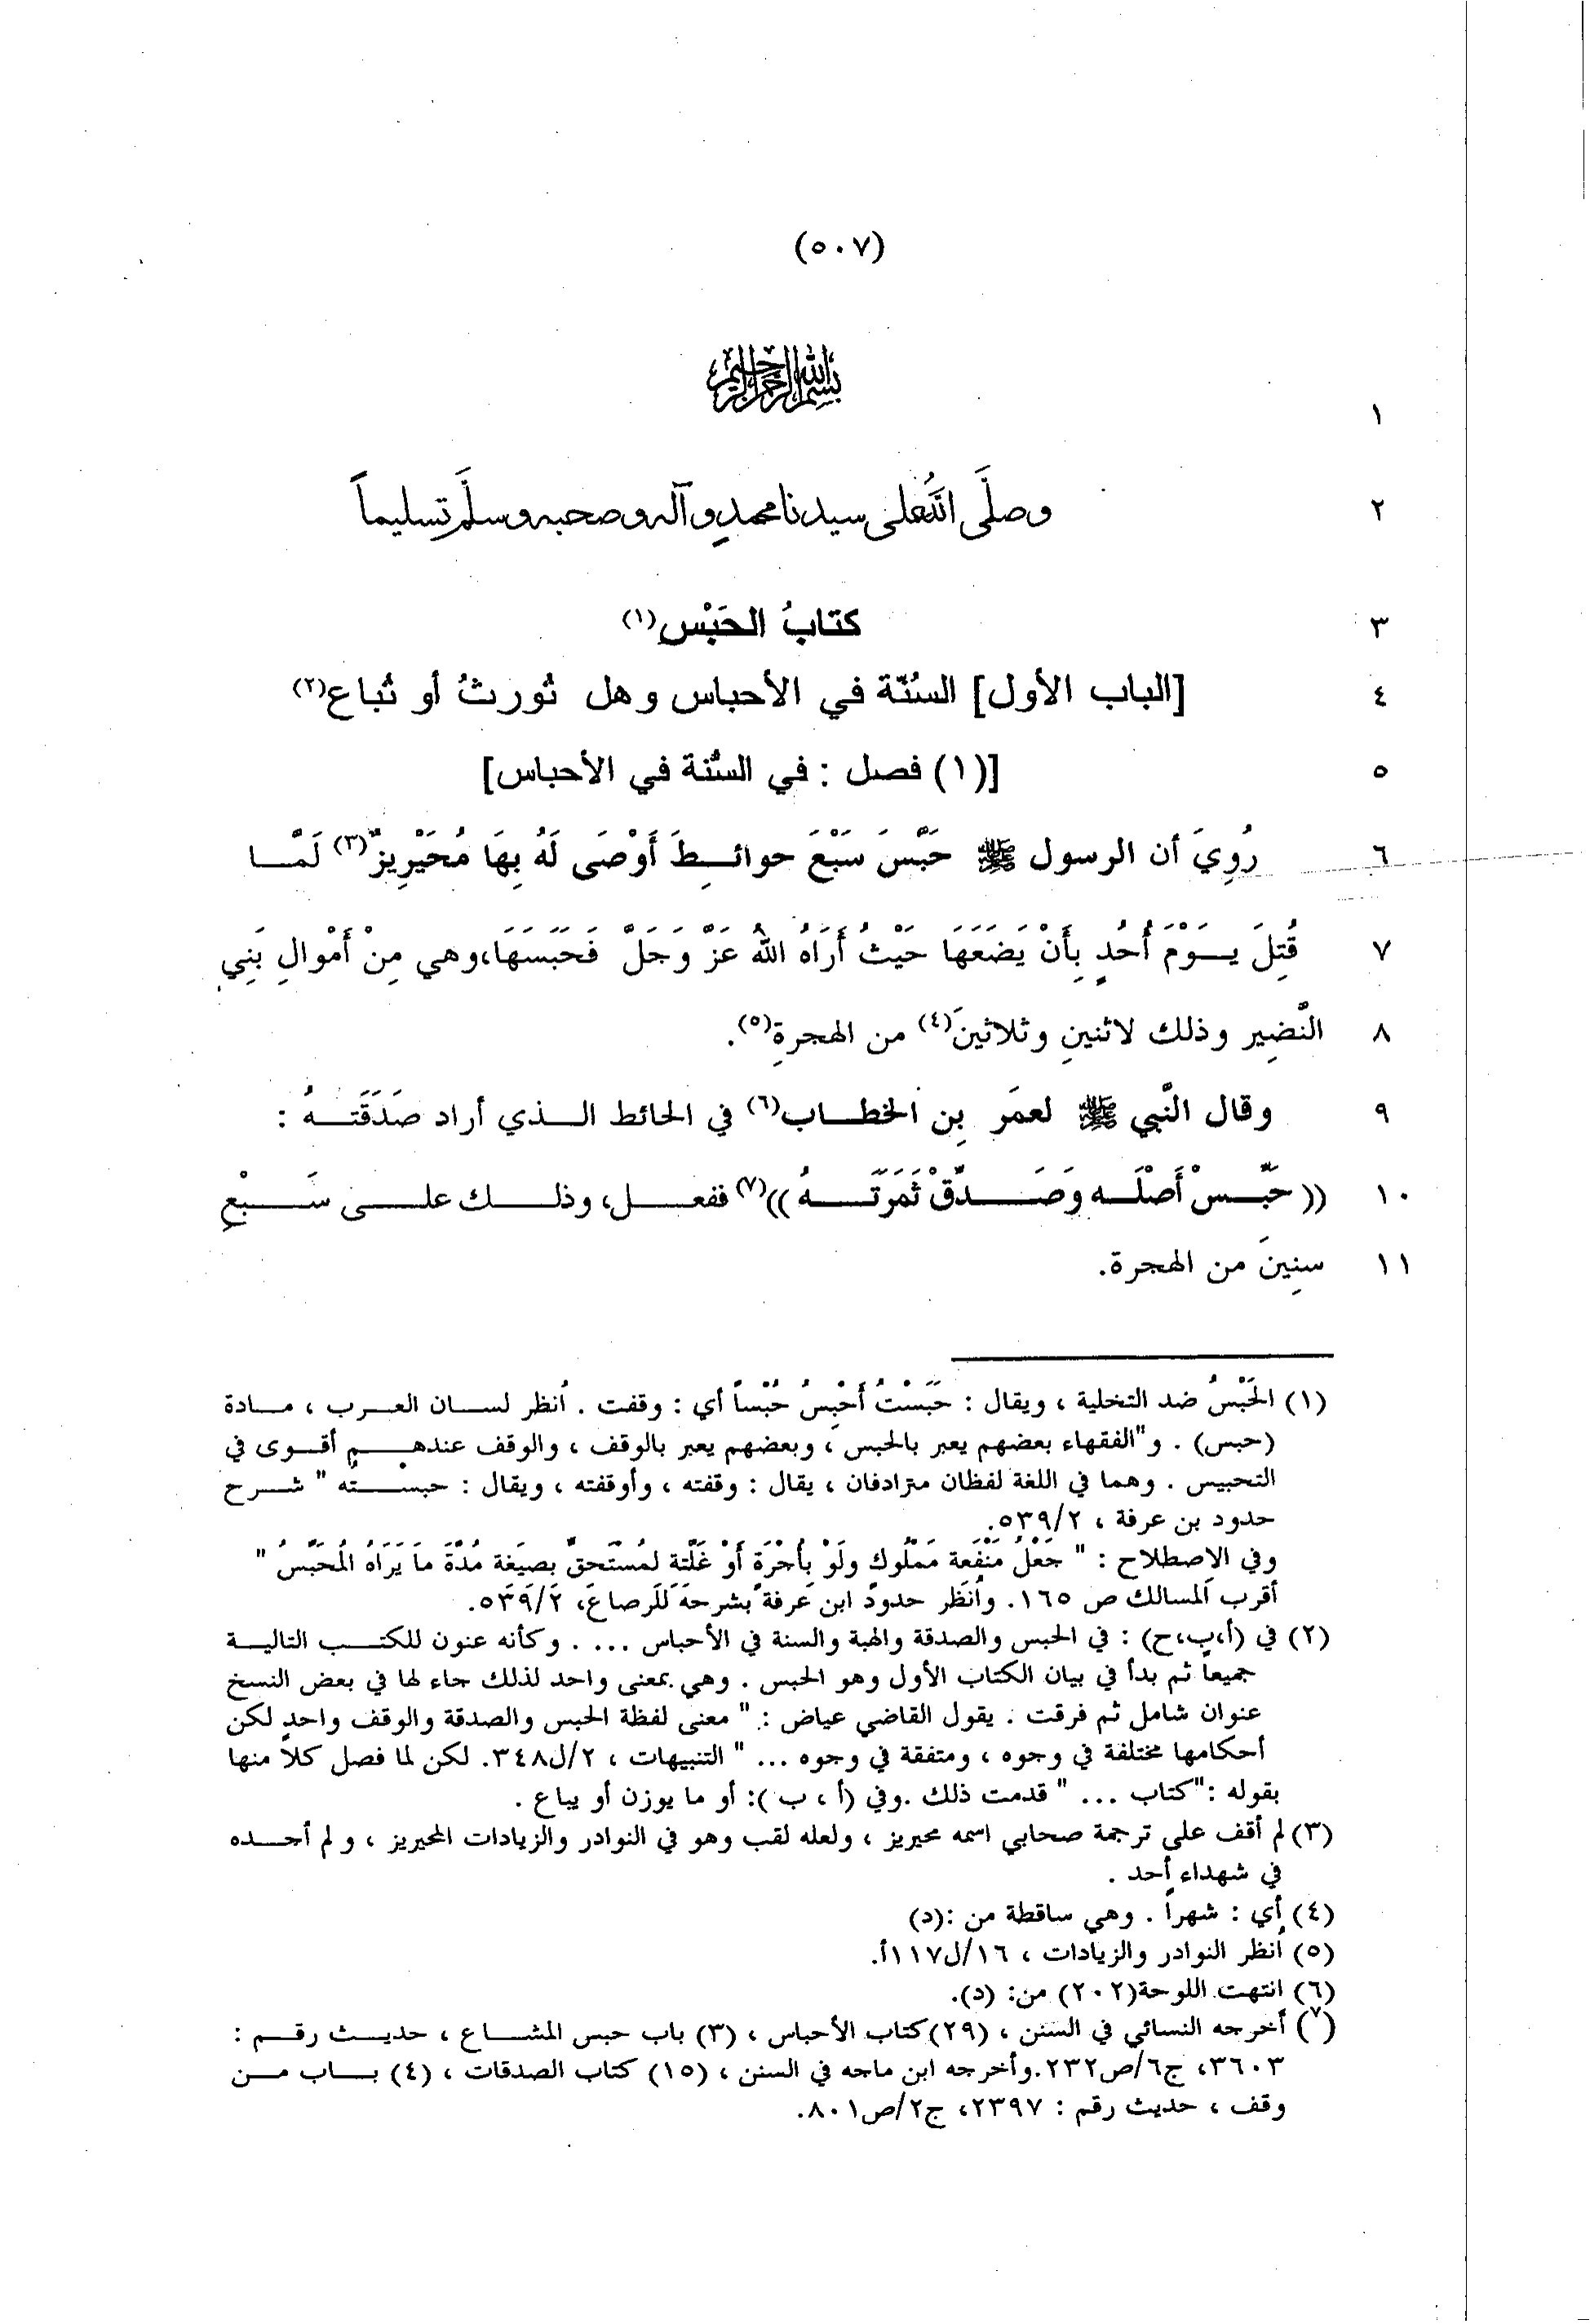 (٥٠٧)
بسم الله الرحمن الرحيم
١
وصلَّى اللهُ على سيدنا محمدٍ وآله وصحبه وسلَّم تسليماً
٢
كتابُ الحَبْسِ(١)
٣
[الباب الأول] السُنّة في الأحباس وهل تُورثُ أو تُباع(٢)
٤
[(١) فصل : في السُّنة في الأحباس]
٥
رُوِيَ أن الرسول ﷺ حَبَّسَ سَبْعَ حوائطِ أَوْصَى لَهُ بِهَا مُحَيْرِيزٌ(٣) لَمَّا
٦
قُتِلَ يَوْمَ أُحُدٍ بِأَنْ يَضَعَهَا حَيْثُ أَرَاهُ اللهُ عَزَّ وَجَلَّ فَحَبَسَهَا،وهي مِنْ أَمْوالِ بَنِي
٧
النَّضِير وذلك لاثنينِ وثلاثينَ(٤) من الهجرةِ(٥).
٨
وقال النَّبي ﷺ لعمَر بِن الخطاب(٦) في الحائط الذي أراد صَدَقَتهُ :
٩
(( حَبِّسْ أَصْلَه وَصَدِّقْ ثَمَرَتَهُ ))(٧) ففعل، وذلك على سَبْعِ
١٠
سنِينَ من الهجرة.
١١
(١) الحَبْسُ ضد التخلية ، ويقال : حَبَسْتُ أَحْبِسُ حُبْساً أي : وقفت . اُنظر لسان العرب ، مادة
(حبس) . و"الفقهاء بعضهم يعبر بالحبس ، وبعضهم يعبر بالوقف ، والوقف عندهم أقوى في
التحبيس . وهما في اللغة لفظان مترادفان ، يقال : وقفته ، وأوقفته ، ويقال : حبسْته " شرح
حدود بن عرفة ، ٥٣٩/٢.
وفي الاصطلاح : " جَعْلُ مَنْفَعِة مَمْلُوكٍ ولَوْ بأُجْرَةٍ أَوْ غَلَّتِة لمُسْتَحقٍّ بصِيَغة مُدَّةَ مَا يَرَاهُ المُحَبِّسُ "
أقرب المسالك ص ١٦٥. واُنظر حدود ابن عرفة بشرحه للرصاع، ٥٣٩/٢.
(٢) في (أ،ب،ح) : في الحبس والصدقة والهبة والسنة في الأحباس ... . وكأنه عنون للكتب التالية
جميعاً ثم بدأ في بيان الكتاب الأول وهو الحبس . وهي بمعنى واحد لذلك جاء لها في بعض النسخ
عنوان شامل ثم فرقت . يقول القاضي عياض : " معنى لفظة الحبس والصدقة والوقف واحد لكن
أحكامها مختلفة في وجوه ، ومتفقة في وجوه ... " التنبيهات ، ٢/ل٣٤٨. لكن لما فصل كلاً منها
بقوله :"كتاب ... " قدمت ذلك .وفي (أ ، ب ): أو ما يوزن أو يباع .
(٣) لم أقف على ترجمة صحابي اسمه محيريز ، ولعله لقب وهو في النوادر والزيادات المحيريز ، و لم أجده
في شهداء أحد .
(٤) أي : شهراً . وهي ساقطة من :(د)
(٥) اُنظر النوادر والزيادات ، ١٦/ل١١٧أ.
(٦) انتهت اللوحة(٢٠٢) من: (د).
(٧) أخرجه النسائي في السنن ، (٢٩)كتاب الأحباس ، (٣) باب حبس المشاع ، حديث رقم :
٣٦٠٣، ج٦/ص٢٣٢.وأخرجه ابن ماجه في السنن ، (١٥) كتاب الصدقات ، (٤) باب من
وقف ، حديث رقم : ٢٣٩٧، ج٢/ص٨٠١.